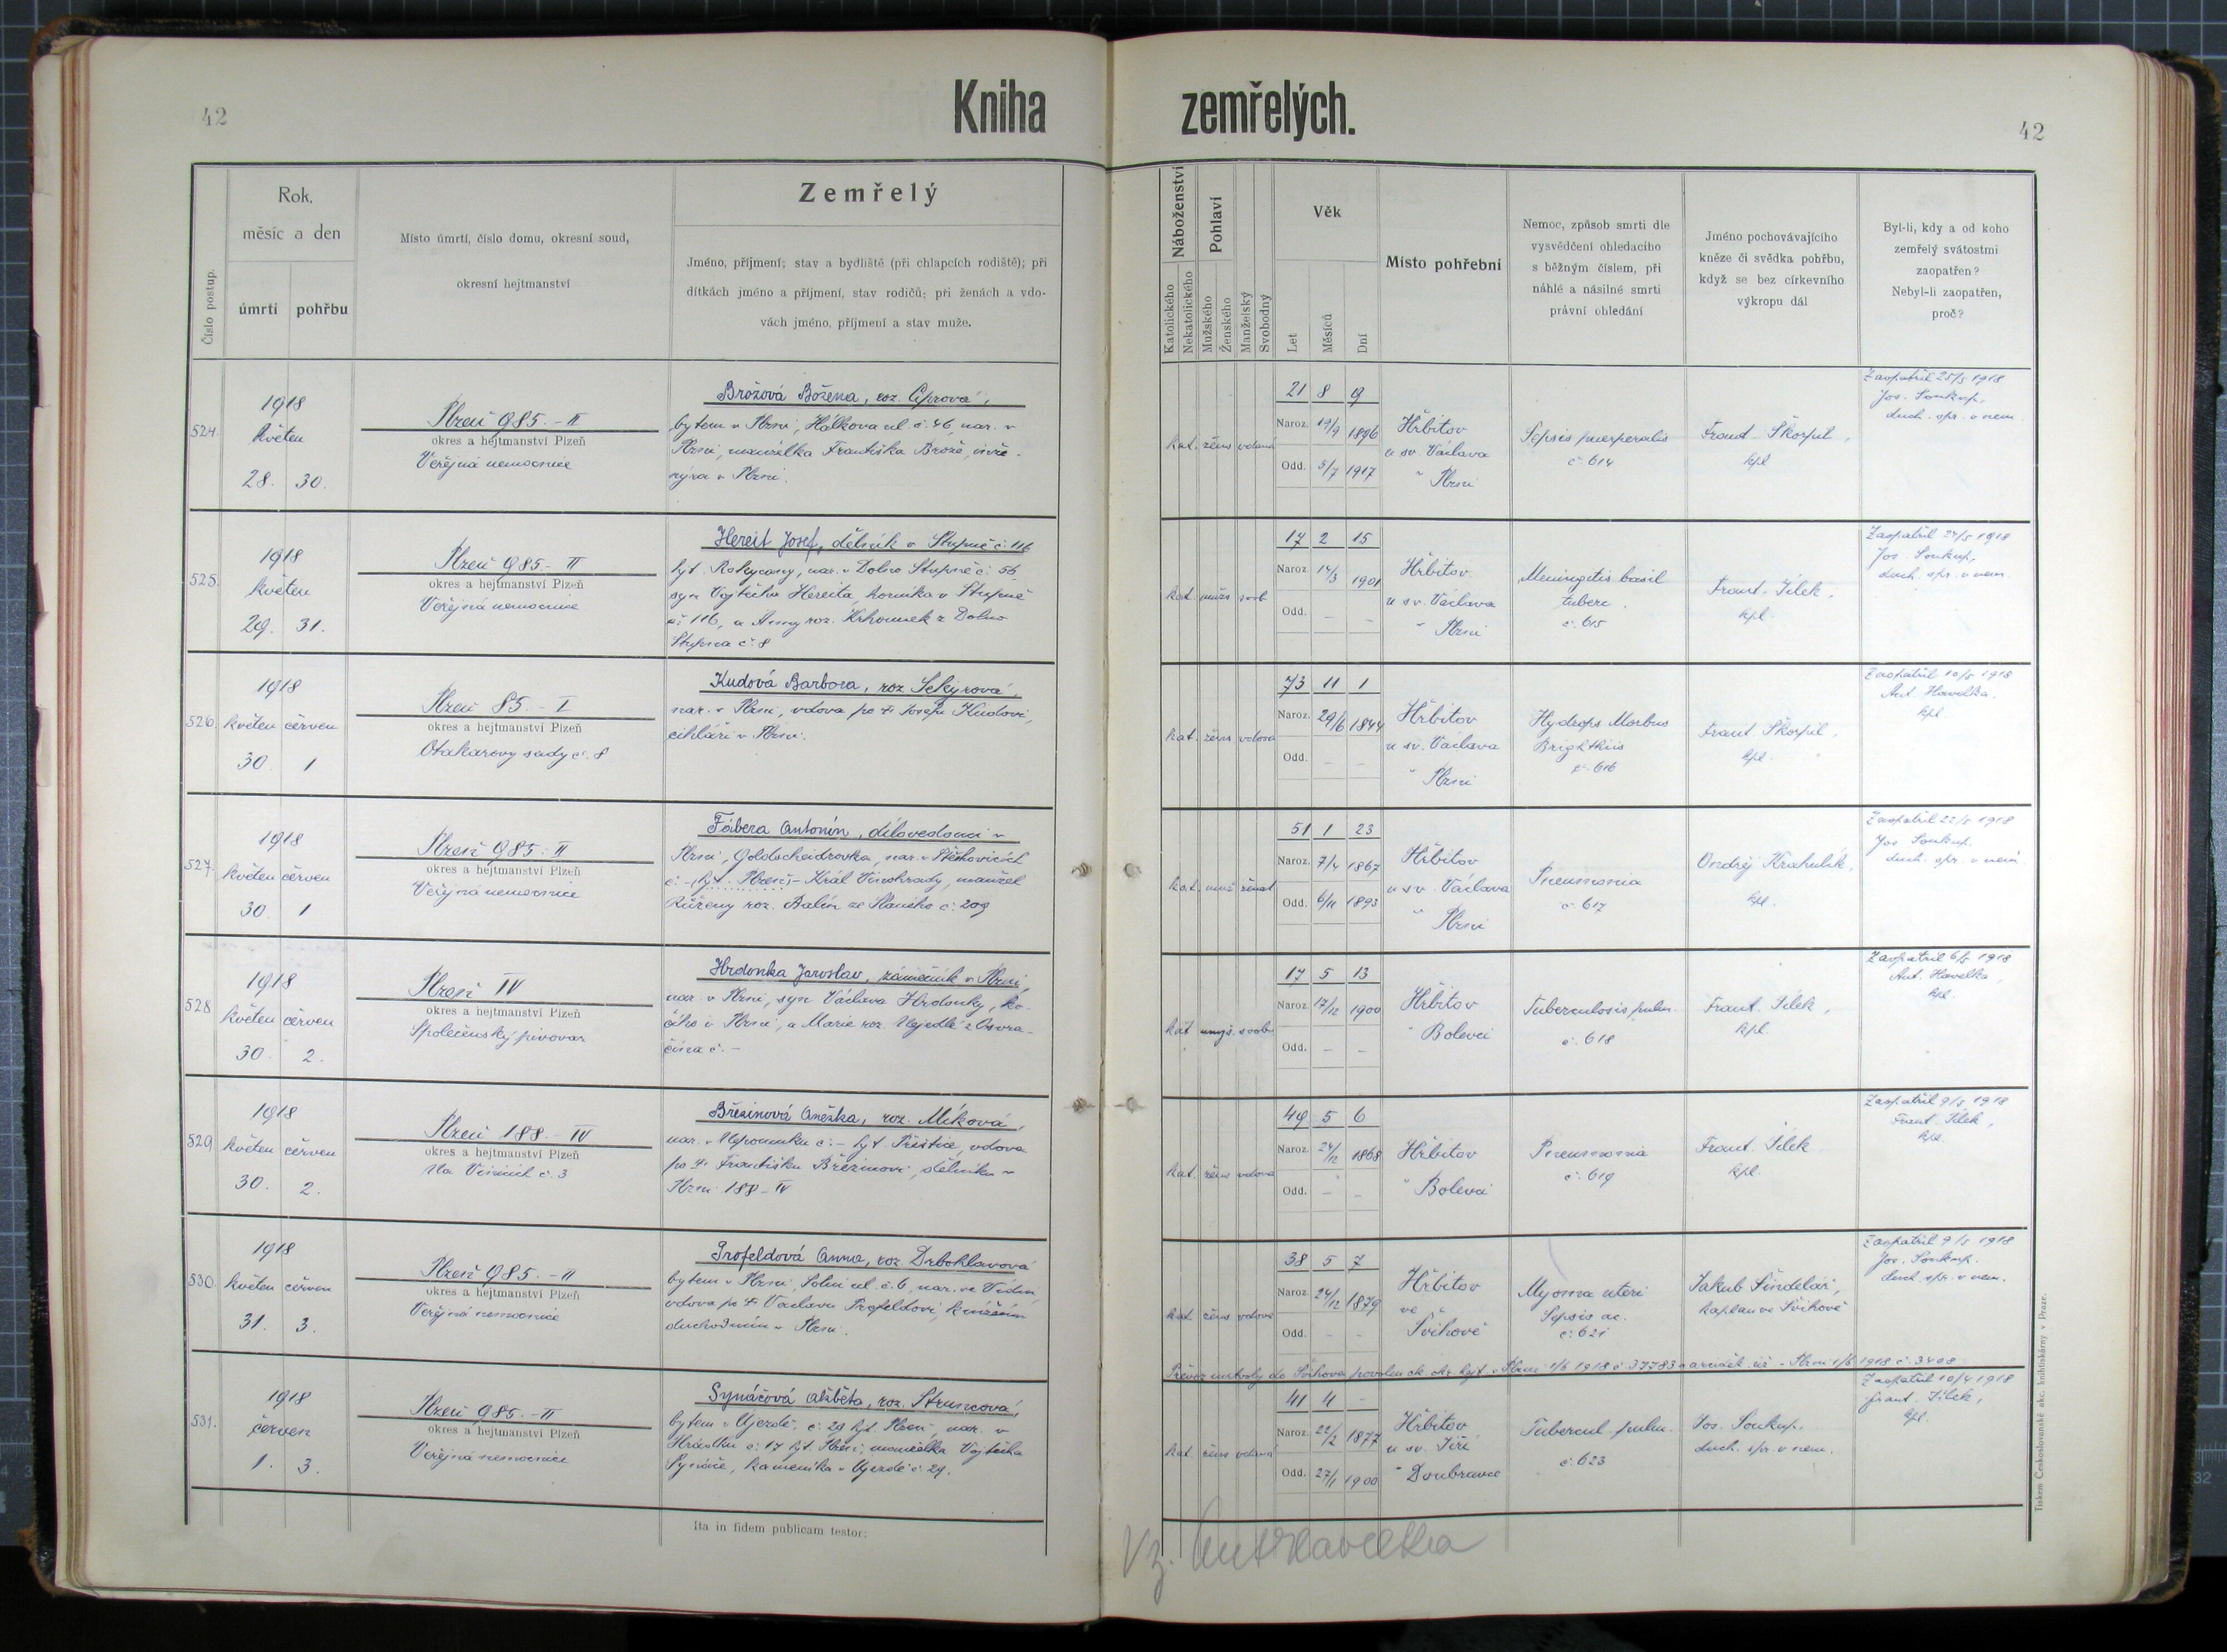 42
Kniha
zemřelých.
42
Číslo postup.
Rok,
měsíc a den
úmrtí
pohřbu
Místo úmrtí, číslo domu, okresní soud,
okresní hejtmanství
Zemřelý
Jméno, příjmení; stav a bydliště (při chlapcích rodiště); při
dítkách jméno a příjmení, stav rodičů; při ženách a vdo-
vách jméno, příjmení a stav muže.
Náboženství
Katolického
Nekatolického
Pohlaví
Mužského
Ženského
Manželský
Svobodný
Věk
Let
Měsíců
Dní
Místo pohřební
Nemoc, způsob smrti dle
vysvědčení ohledacího
s běžným číslem, při
náhlé a násilné smrti
právní ohledání
Jméno pochovávajícího
kněze či svědka pohřbu,
když se bez církevního
výkropu dál
Byl-li, kdy a od koho
zemřelý svátostmi
zaopatřen?
Nebyl-li zaopatřen,
proč?
524.
1918
květen
28. 30.
Plzeň 985.-II
okres a hejtmanství Plzeň
Veřejná nemocnice
Brožová Božena, roz. Ciprová,
bytem v Plzni, Hálkova ul. č. 46, nar. v
Plzni, manželka Františka Brože,
v Plzni.
kat. žens vdaná
21 8 9
Naroz. 19/9 1896
Odd. 5/7 1917
Hřbitov
u sv. Václava
v Plzni
Sepsis puerperalis
č. 614
Frant. Škorpil,
kpl
Zaopatřil 25/5 1918
Jos. Soukup,
duch. spr. v nem.
525.
1918
květen
29. 31.
Plzeň 985.-II
okres a hejtmanství Plzeň
Veřejná nemocnice
Hereit Josef, dělník v Stupně č. 116
hjt. Rokycany, nar. v Dolno Stupně č. 56,
syn Vojtěcha Hereita, horníka v Stupně
č. 116, a Anny roz. Krhounek z Dolno
Stupna č. 8
kat. mužs svob
17 2 15
Naroz. 14/3 1901
Odd. – –
Hřbitov
u sv. Václava
v Plzni
Meningitis basil
tuberc.
č. 615
Frant. Jílek,
kpl.
Zaopatřil 24/5 1918
Jos. Soukup,
duch. spr. v nem.
526.
1918
květen červen
30. 1
Plzeň 85.-I
okres a hejtmanství Plzeň
Otakarovy sady č. 8
Kudová Barbora, roz. Sekyrová,
nar. v Plzni, vdova po † Josefu Kudovi,
cihláři v Plzni.
kat. žens vdova
73 11 1
Naroz. 29/6 1844
Odd. – –
Hřbitov
u sv. Václava
v Plzni
Hydrops Morbus
Brightkiis
č. 616
Frant. Škorpil,
kpl.
Zaopatřil 10/5 1918
Ant. Havelka,
kpl
527.
1918
květen červen
30. 1
Plzeň 985.-II
okres a hejtmanství Plzeň
Veřejná nemocnice
Fábera Antonín, dílovedoucí v
Plzni, Goldscheidrovka, nar. v Štěchovicích
č. – hjt. Plzeň – Král. Vinohrady, manžel
Růženy roz. Balín ze Slaného č. 209
kat. muž ženat
51 1 23
Naroz. 7/4 1867
Odd. 6/11 1893
Hřbitov
u sv. Václava
v Plzni
Pneumonia
č. 617
Ondřej Krahulík,
kpl.
Zaopatřil 22/5 1918
Jos. Soukup.
duch. spr. v nem
528
1918
květen červen
30. 2.
Plzeň IV
okres a hejtmanství Plzeň
Společenský pivovar
Hrdonka Jaroslav, zámečník v Plzni,
nar. v Plzni, syn Václava Hrdonky, ko-
čího v Plzni, a Marie roz. Nejedlé z Osvra-
čína č. –
kat svob
17 5 13
Naroz. 17/12 1900
Odd. – –
Hřbitov
v Bolevci
Tuberculosis pulm.
č. 618
Frant. Jílek,
kpl.
Zaopatřil 6/5 1918
Ant. Havelka,
kpl.
529
1918
květen červen
30. 2.
Plzeň 188.-IV
okres a hejtmanství Plzeň
Na Vinicích č. 3
Březinová Anežka, roz. Míková,
nar. v Nepomuku č. – hjt. Přeštice, vdova
po † Františku Březinovi, dělníku v
Plzni 188-IV
kat. žens vdova
49 5 6
Naroz. 24/12 1868
Odd. – –
Hřbitov
v Bolevci
Pneumonia
č. 619
Frant. Jílek
kpl.
Zaopatřil 9/5 1918
Frant. Jílek,
kpl.
530.
1918
květen červen
31. 3.
Plzeň 985.-II
okres a hejtmanství Plzeň
Veřejná nemocnice
Profeldová Anna, roz Drbohlavová
bytem v Plzni, Solní ul. č. 6, nar. ve Vídni,
vdova po † Václavu Profeldovi,
v Plzni.
kat. žens vdova
38 5 7
Naroz. 24/12 1879
Odd. – –
Hřbitov
ve
Švihově
Myoma uteri
Sepsis ac.
č. 621
Jakub Šindelář,
kaplan ve Švihově
Zaopatřil 9/5 1918
Jos. Soukup.
duch. spr. v nem.
Převoz mrtvoly do Švihova povolen ok. okr. hejt. v Plzni 1/6 1918 č. 37783 1/6 1918 č. 3408
531.
1918
červen
1. 3.
Plzeň 985.-II
okres a hejtmanství Plzeň
Veřejná nemocnice
Synáčová Alžběta, roz. Struncová,
bytem v Újezdě č. 29 hjt. Plzeň, nar. v
Hrádku č. 17 hjt. Plzeň, manželka Vojtěcha
Synáče, kameníka v Újezdě č. 29.
kat. žens vdaná
41 4 –
Naroz. 22/2 1877
Odd. 27/1 1900
Hřbitov
u sv. Jiří
v Doubravce
Tubercul pulm.
č. 623
Jos. Soukup,
duch. spr. v nem.
Zaopatřil 10/4 1918
Frant. Jílek,
kpl.
Ita in fidem publicam testor:
Vz. Ant Havelka
Tiskem Českoslovanské akc. knihtiskárny v Praze.